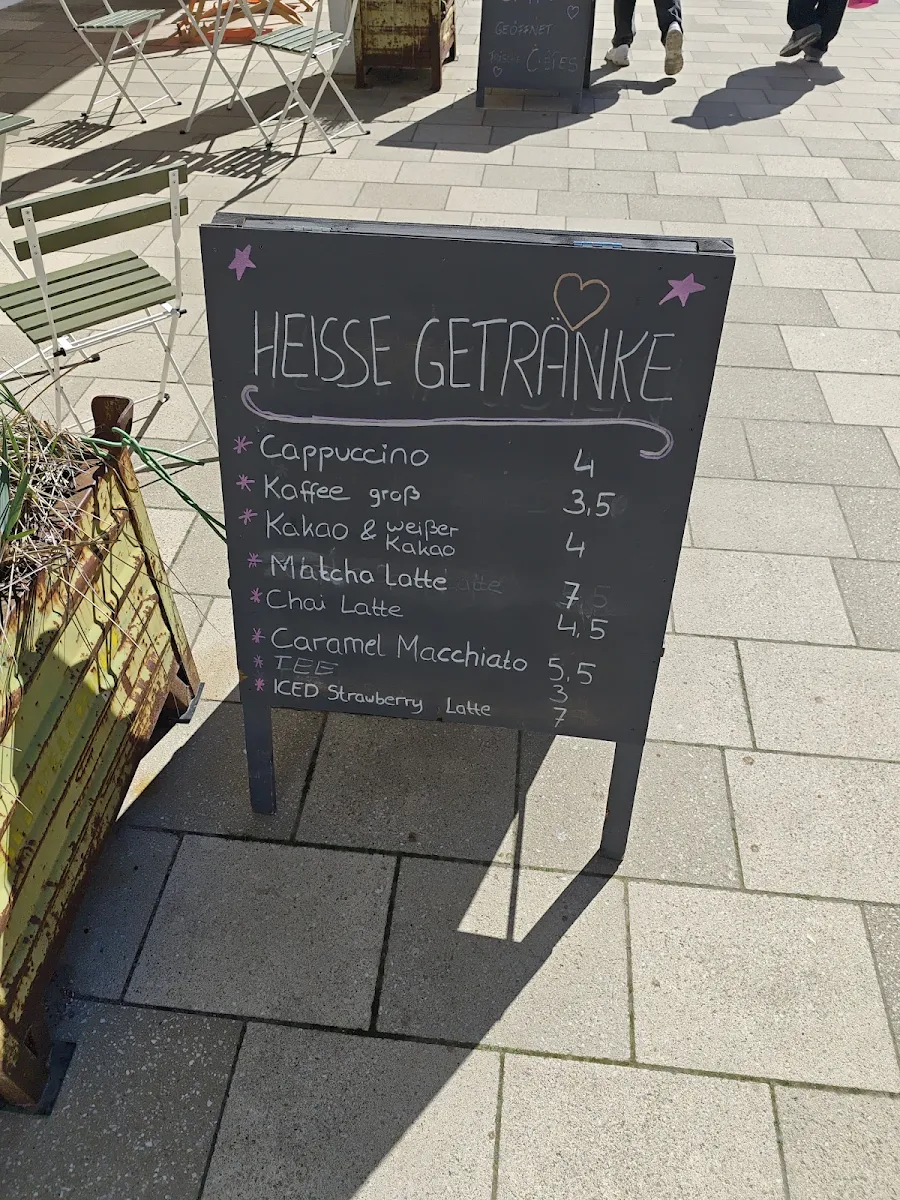 GEÖFFNET
HEISSE GETRÄNKE
Cappuccino 4
Kaffee groß 3,5
Kakao & weißer
Kakao 4
Matcha Latte 7
Chai Latte 4,5
Caramel Macchiato 5,5
TEE 3
ICED Strawberry Latte 7